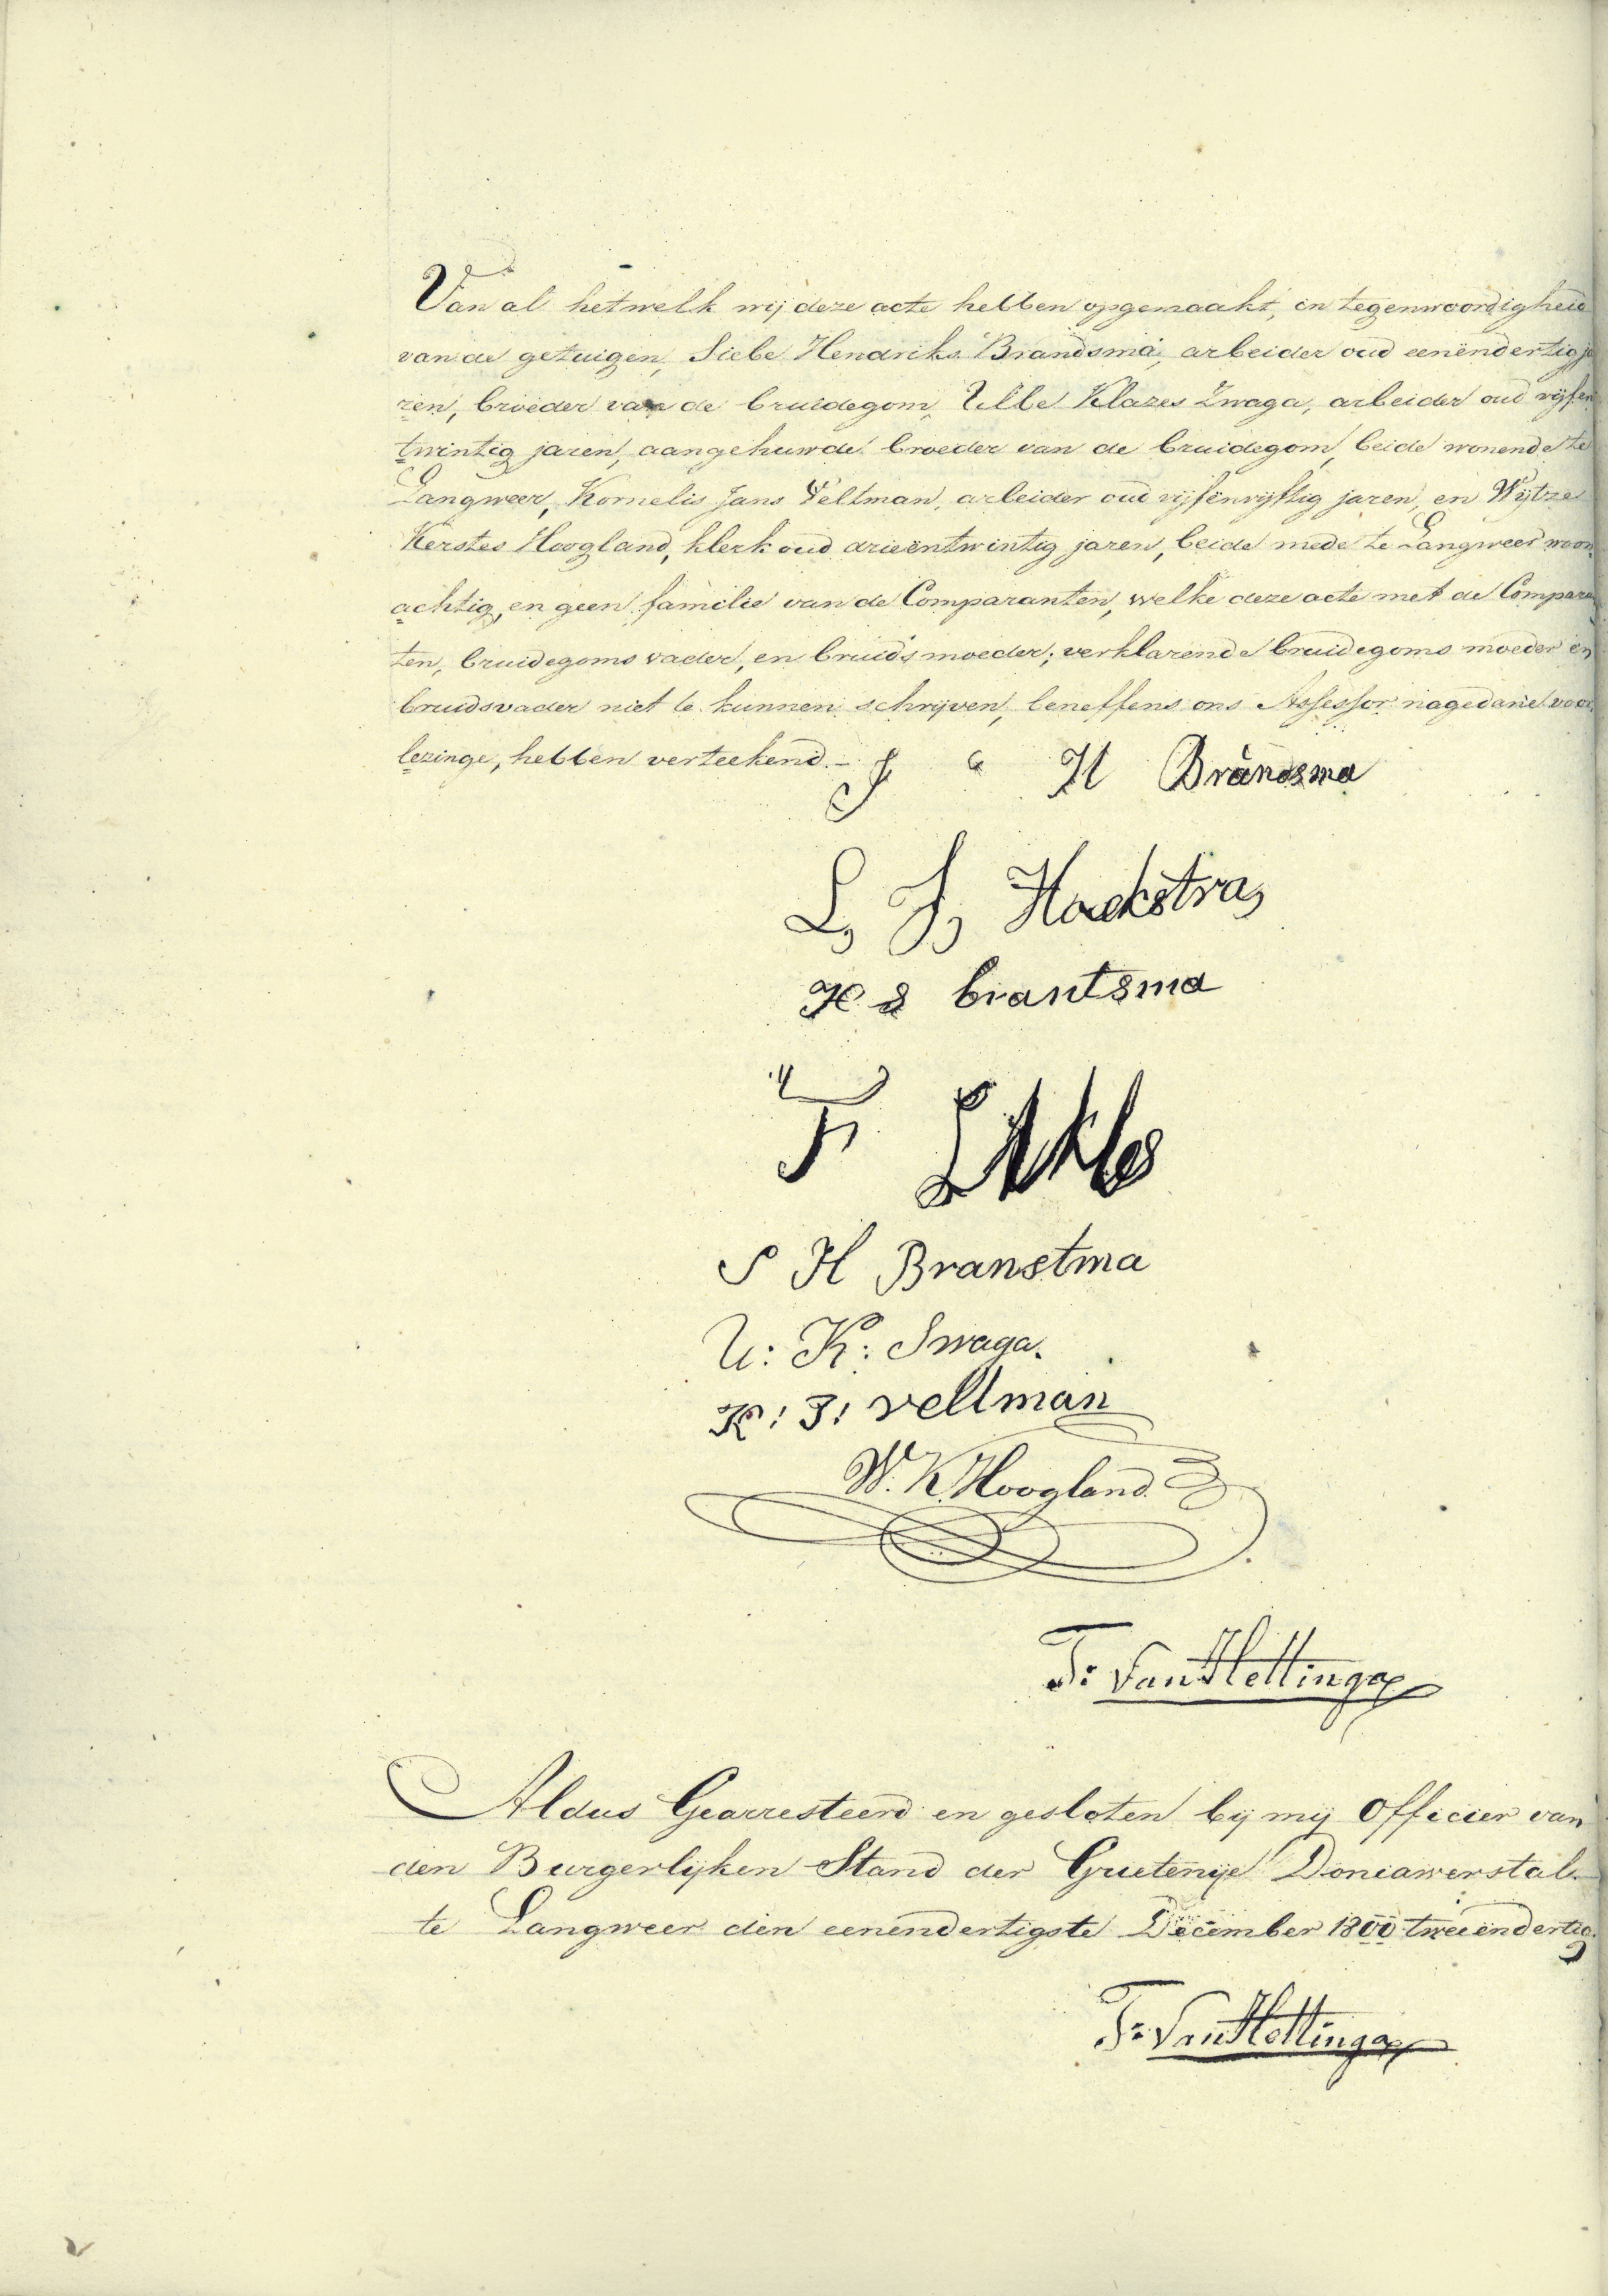 Van al hetwelk wij deze acte hebben opgemaakt, in tegenwoordigheid
van de getuigen, Siebe Hendriks Brandsma, arbeider oud eenëndertig ja
ren, broeder van de bruidegom, Ulbe Klazes Zwaga, arbeider oud vijfen
twintig jaren, aangehuwde broeder van de bruidegom, beide wonende te
Langweer, Kornelis Jans Veltman, arbeider oud vijfenvijftig jaren, en Wijtze
Kerstes Hoogland, klerk oud drieëntwintig jaren, beide mede te Langweer woon
achtig, en geen familie van de Comparanten, welke deze acte met de Compara
ten, bruidegoms vader, en bruids moeder; verklarende bruidegoms moeder en
bruidsvader niet te kunnen schrijven, beneffens ons Assessor nagedane voor
lezinge, hebben verteekend.-
J H Brandsma
L, J, Hoekstra,
H S brantsma
F
S H Branstma
U: K: Swaga.
K: J: veltman
W. K. Hoogland
T: Van Hettinga
Aldus Gearresteerd en gesloten bij mij Officier van
den Burgerlijken Stand der Grietenije Doniawerstal
te Langweer den eenendertigste December 1800 tweeëndertig.
T: Van Hettinga